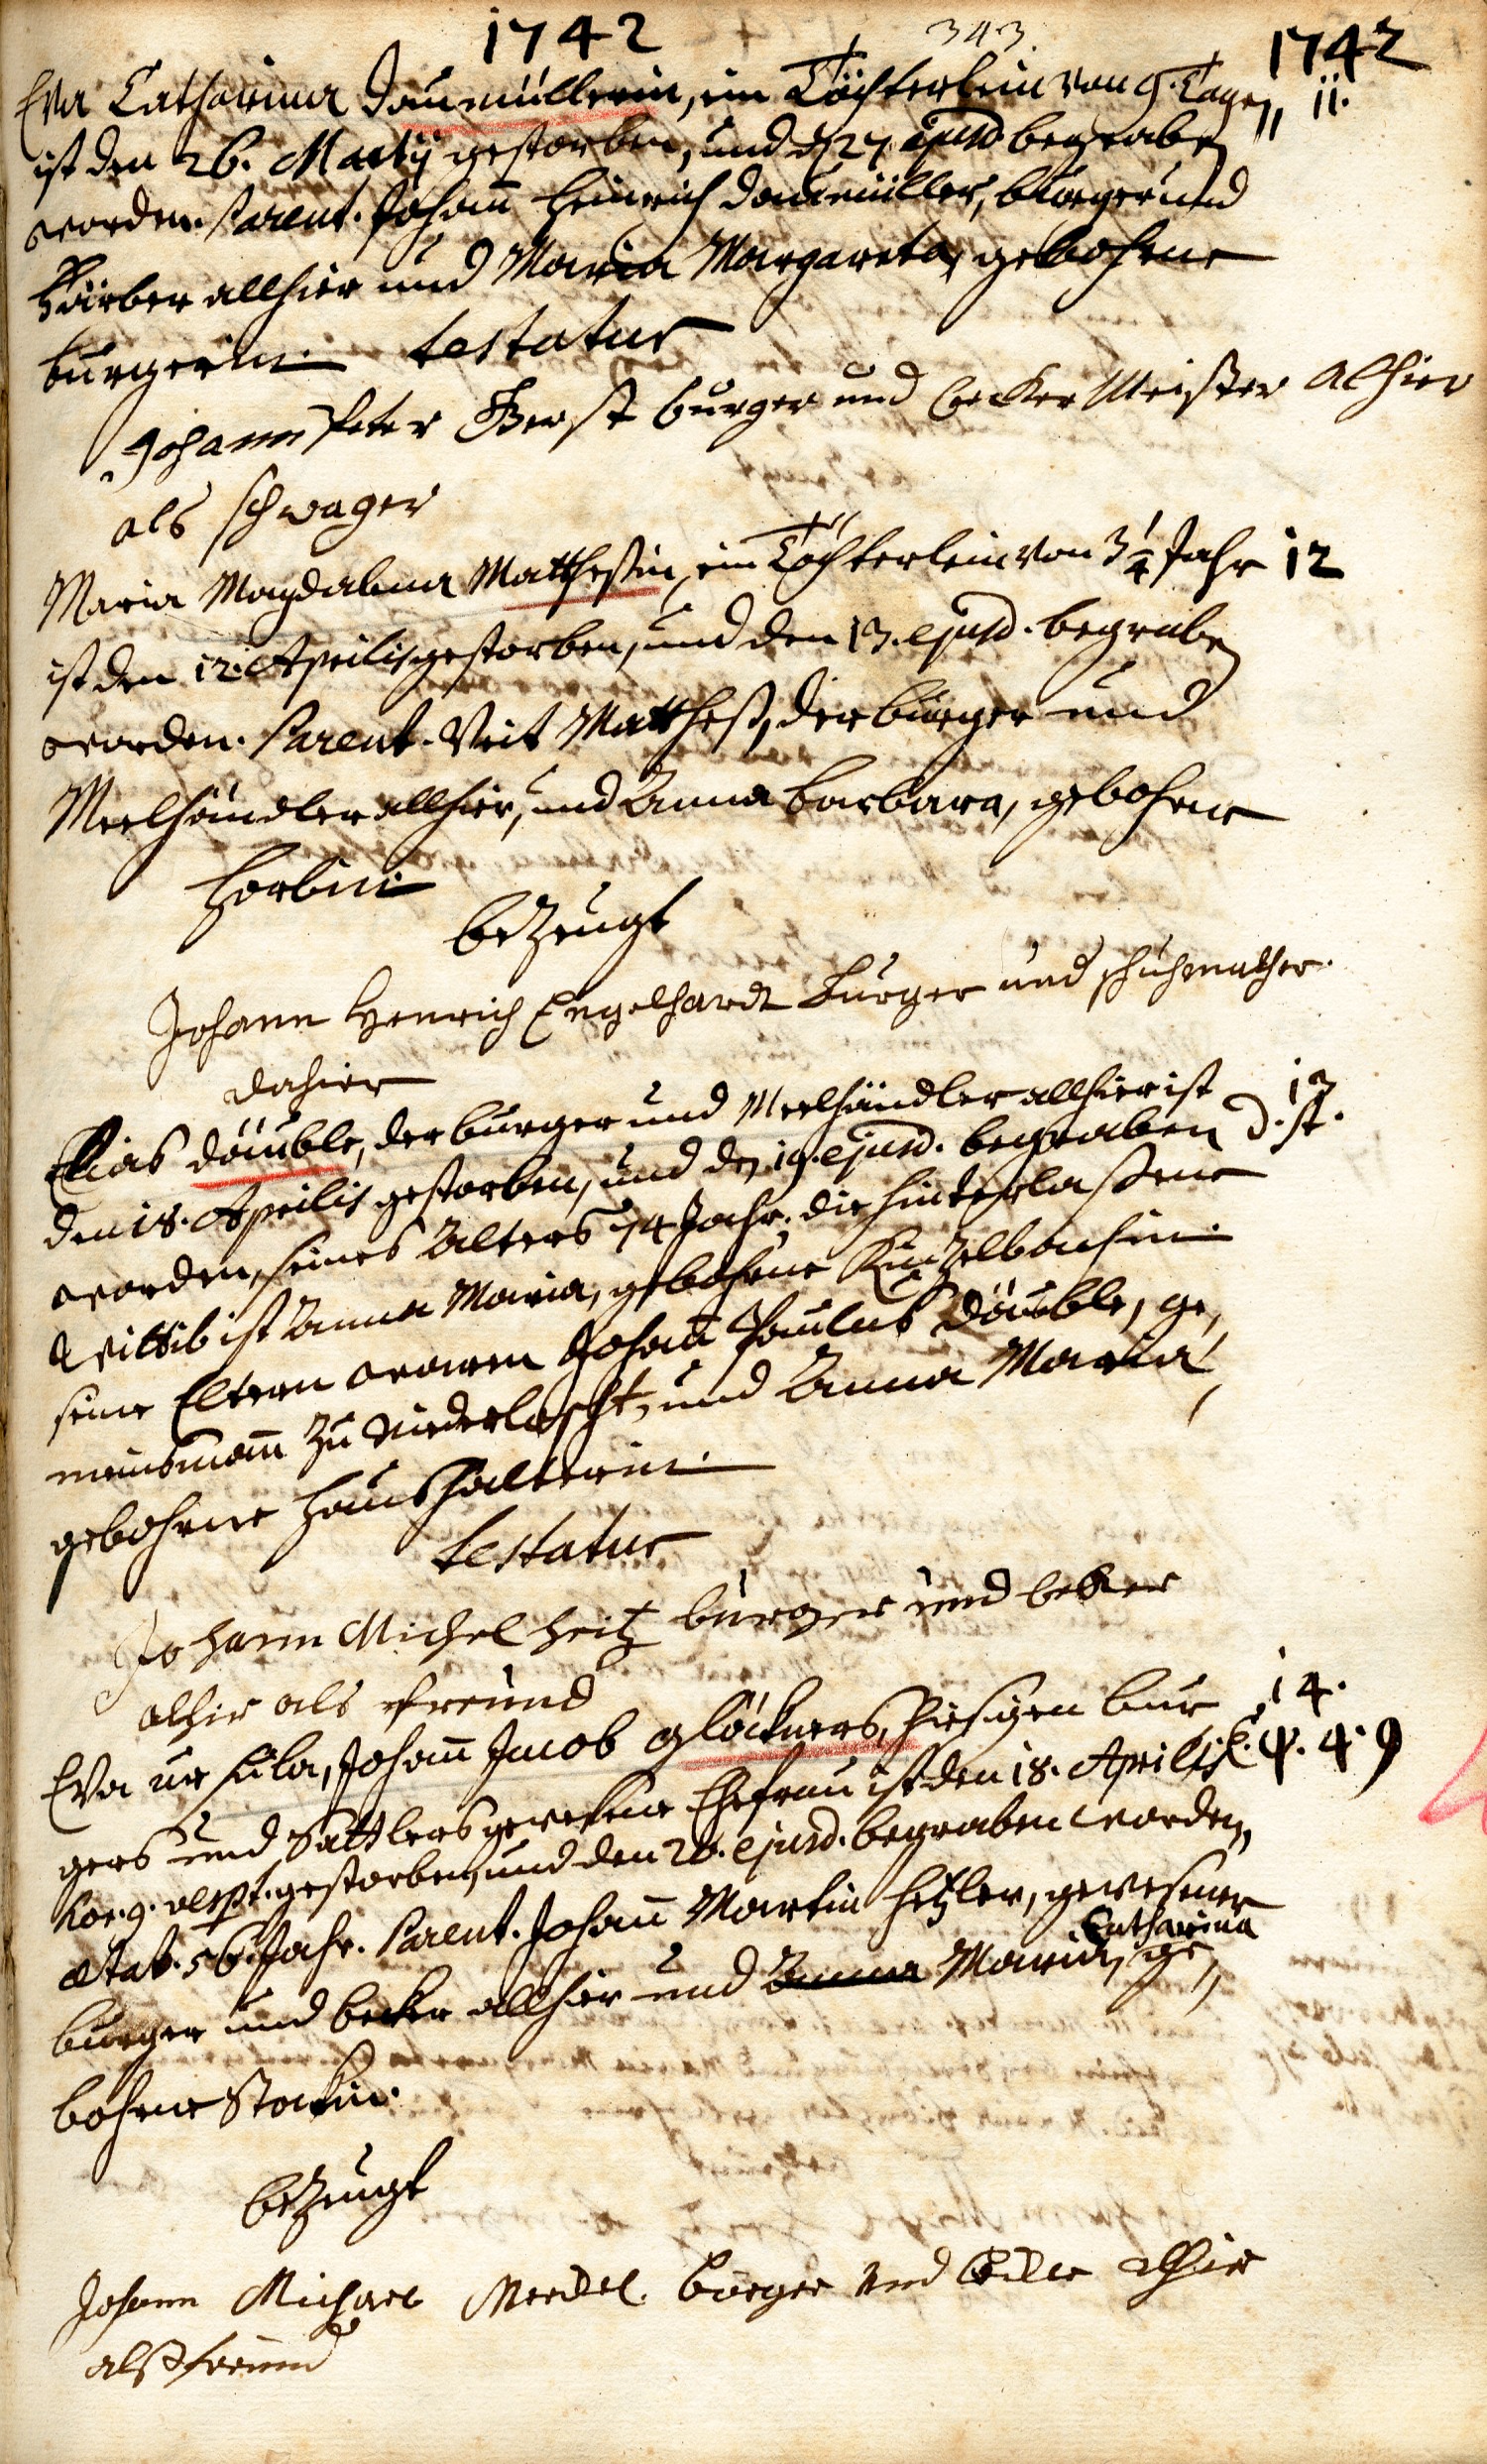 1742 343. 1742
Eva Catharina Daumüllerin, ein Töchterlein von 9. Tagen 11.
ist den 26. Martij gestorben, und dn 27 ejusd begraben
worden. Parent. Johann Heinrich Daumüller, burger und
Färber allhier und Maria Margareta, gebohrne
burgerin. testatur
Johann Peter Gerst burger und becker Meister alhier
als schwager
Maria Magdalena Matthesin, ein Töchterlein von 3 1/4 Jahr 12
ist den 12. Aprilis gestorben, und den 13. ejusd. begraben
worden. Parent. Veit Mattheß, der burger und
Meelhändler allhier, und Anna barbara, gebohrne
Horbin.
bezeugt
Johann Henrich Engelhardt burger und schuhmacher
dahier
Elias Däuble, der burger und Meelhändler allhier ist 13
den 18. Aprilis gestorben, und dn 19. ejusd. begraben d. st.
worden, seines Alters 74 Jahr. die hinterlaßene
Wittib ist Anna Maria, gebohrne Künzelbachin.
seine Eltern waren Johann Paulus Däuble, ge,
meinsmann zu Niederlascht, und Anna Maria,
gebohrne Haushälterin.
testatur
Johann Michel heitz burger und beker
alhir als freund
Eva ursula, Johann Jacob Glöckners, hiesigen bur 14.
gers und Sattlers gewesene Ehefrau ist den 18. Aprilis
hor. 9. vespt. gestorben, und den 20. ejusd. begraben worden,
ætat. 56. Jahr. Parent. Johann Martin Hetzler, gewesener
Catharina
burger und becker allhier und Anna Maria, ge,
bohrne Starkin.
bezeugt
Johann Michael burger und alhier
alß freund